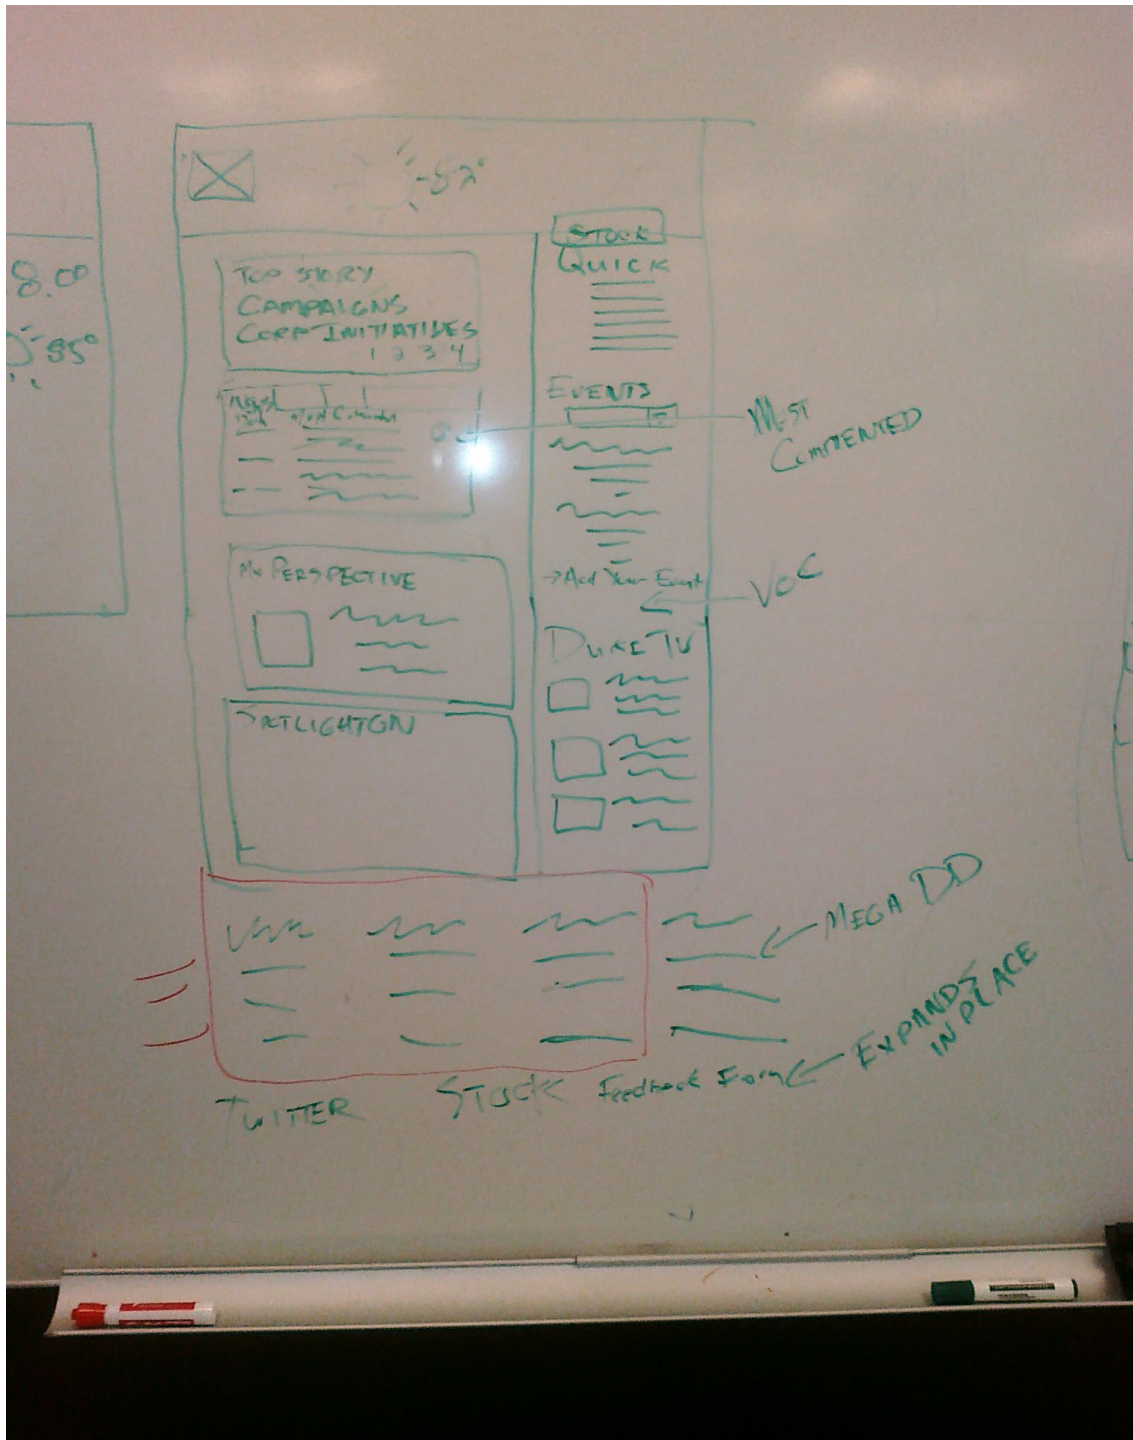 82°
8.00
95°
STOCK
QUICK
TOP STORY
CAMPAIGNS
CORP INITIATIVES
1 2 3 4
EVENTS
News
MOST
COMMENTED
→Add Your Event
VOC
MY PERSPECTIVE
DUKE TV
SPOTLIGHT ON
MEGA DD
EXPANDS
IN PLACE
TWITTER
STOCK
Feedback Form